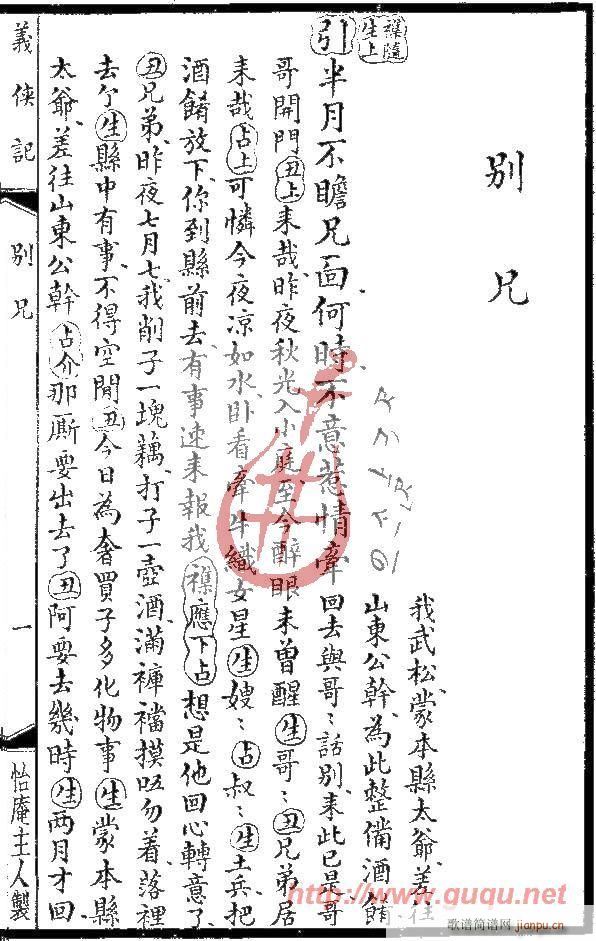 別兄
襍隨生上
引半月不瞻兄面何時不意惹情牽
我武松蒙本縣太爺差往
山東公幹為此整備酒餚
回去與哥〻話別来此已是哥
哥開門丑上来哉昨夜秋光入小庭至今醉眼未曽醒生哥〻丑兄弟居
来哉占上可憐今夜凉如水卧看牽牛織女星生嫂〻占叔〻生土兵把
酒餚放下你到縣前去有事速来報我襍應下占想是他回心轉意了
丑兄弟昨夜七月七我削子一塊藕打子一壺酒滿褲襠摸呒勿着落裡
去介生縣中有事不得空閒丑今日為奢買子多化物事生蒙本縣
太爺差往山東公幹占介那厮要出去了丑阿要去幾時生两月才回
義俠記
別兄
一
怡庵主人製
http://www.guqu.net
歌谱简谱网
jianpu.cn